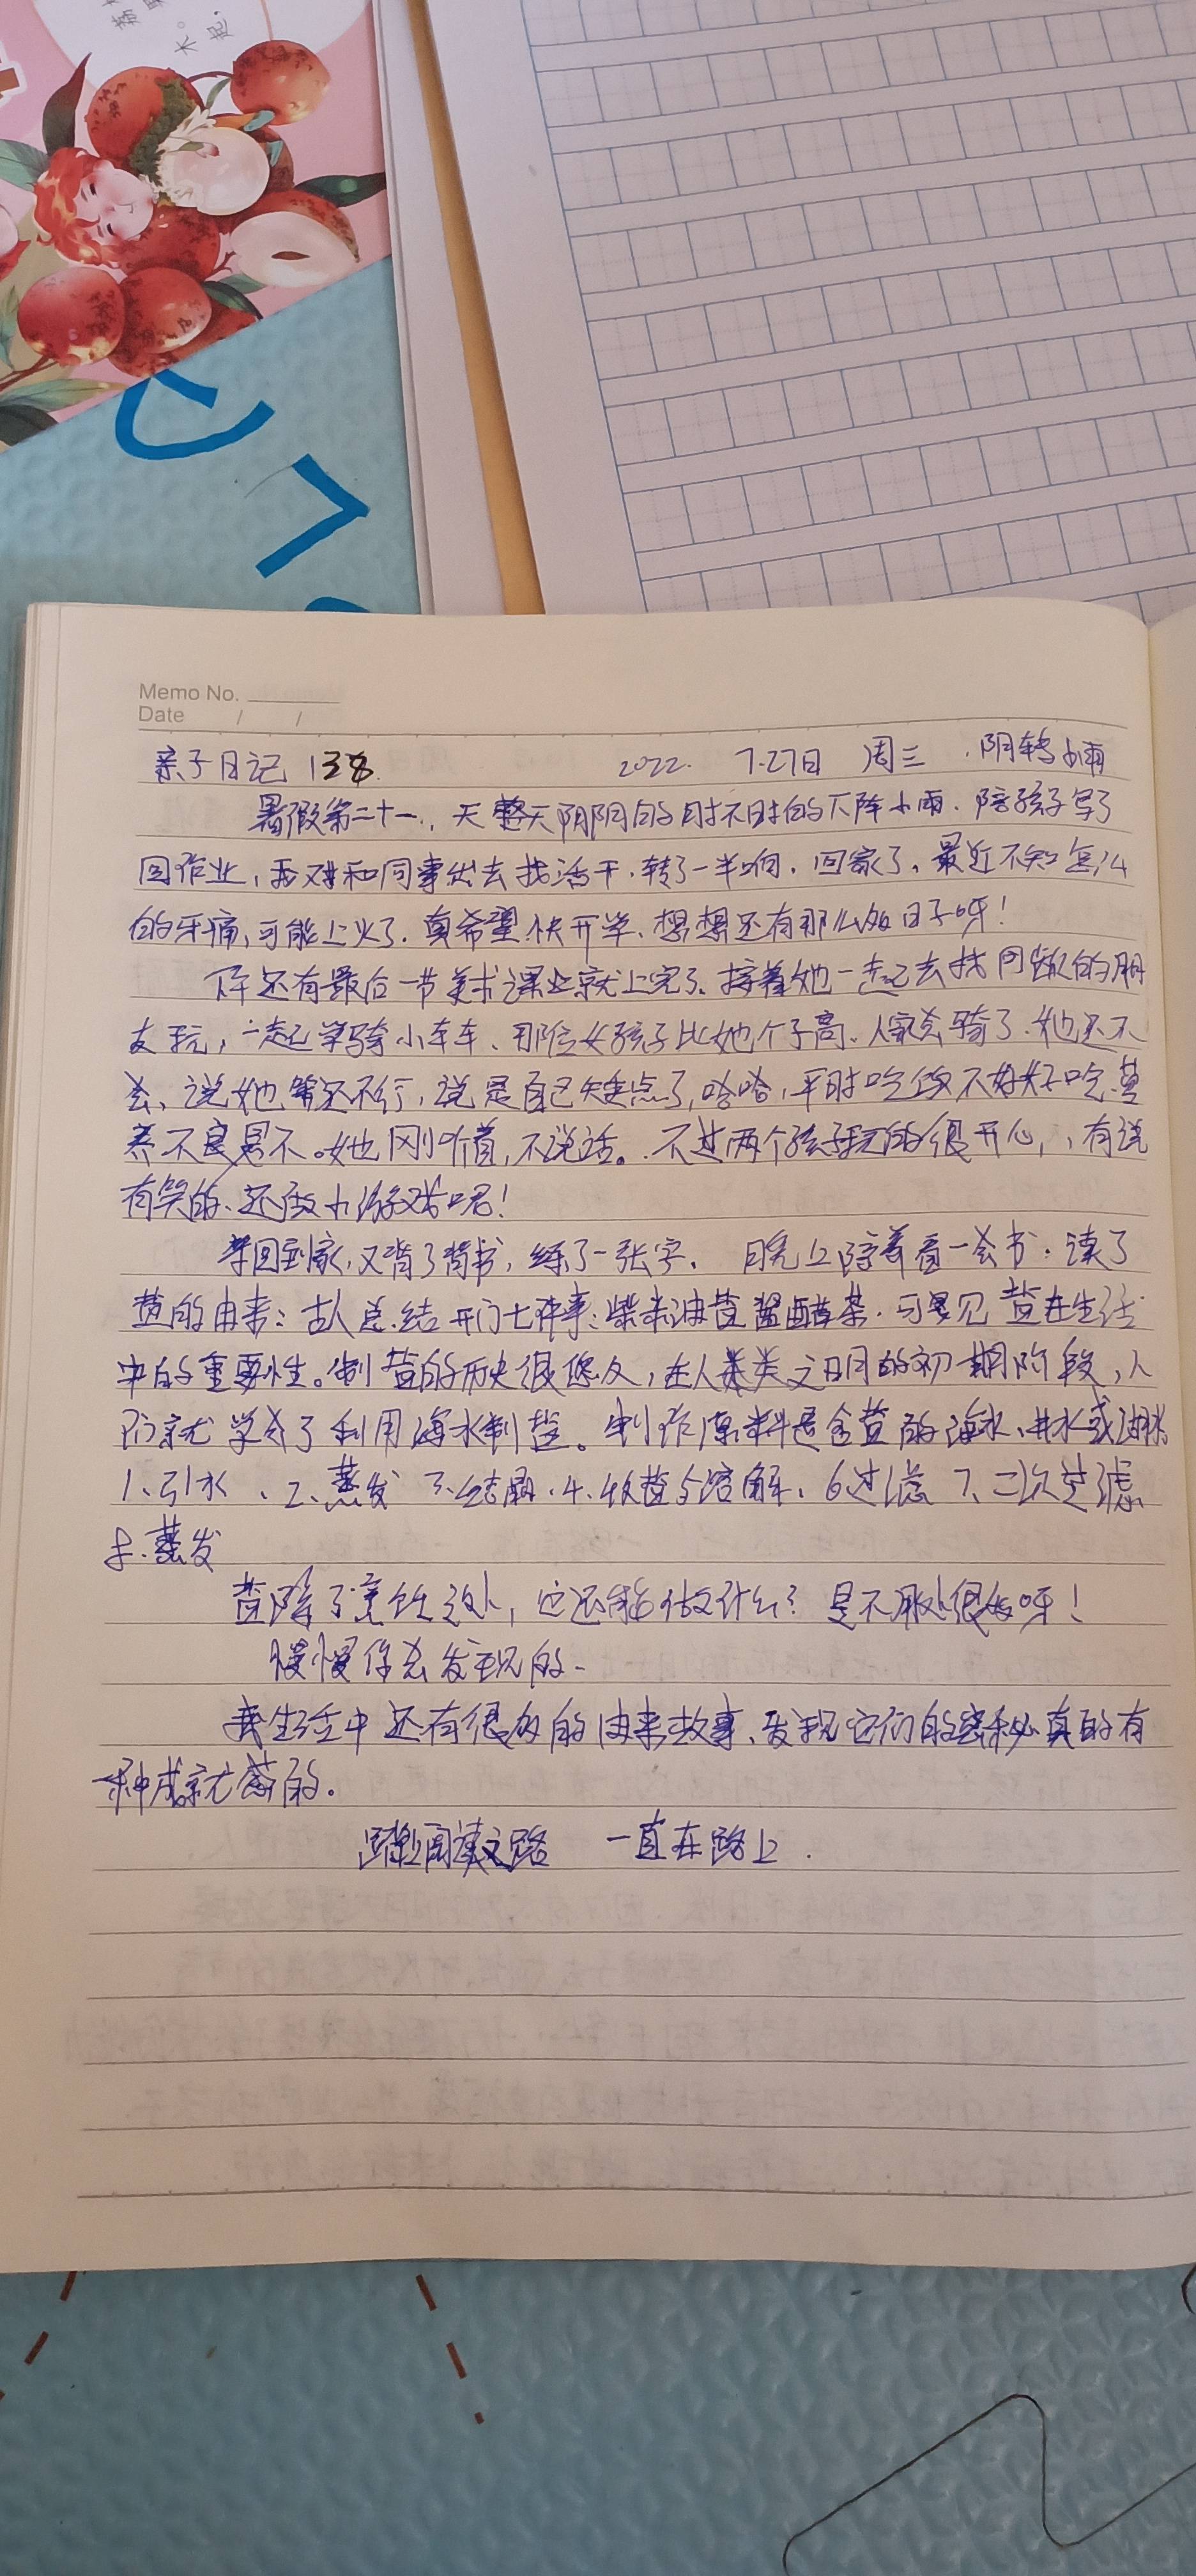 Memo No.
Date / /
亲子日记 138. 2022. 7.27日 周三 阴转小雨
暑假第二十一, 天整天阴阴的时不时的下阵小雨. 陪孩子写了
回作业, 和同事出去找活干, 转了一半响. 回家了. 最近不知怎么
的牙痛, 可能上火了. 真希望快开学、想想还有那么些日子呀!
下午还有最后一节美术课业就上完了、接着她一起去找同做的朋
友玩, 一起学骑小车车、那位女孩子比她个子高. 人家会骑了. 她还不
会、说她笨还不行, 说是自己矮点了, 哈哈, 平时吃饭不好好吃. 营
养不良是不. 她刚听着, 不说话. 不过两个孩子玩的很开心, 有说
有笑的、还做小游戏呢!
等回到家, 又背了背书, 练了一张字. 晚上陪着看一会书. 读了
盐的由来: 古人总结开门七件事: 柴米油盐酱醋茶. 可想见盐在生活
中的重要性。制盐的历史很悠久, 在人类文明的初期阶段, 人
们就学会了利用海水制盐。制作原料是含盐的海水、井水或湖水
1、引水、2、蒸发 3、结晶. 4、收盐与溶解、6过滤 7、二次过滤
8. 蒸发
盐除了烹饪之外, 它还能做什么? 是不用处很多呀!
慢慢你会发现的.
我生活中还有很多的由来故事、发现它们的密秘真的有
一种成就感的.
踏上阅读之路 一直在路上.